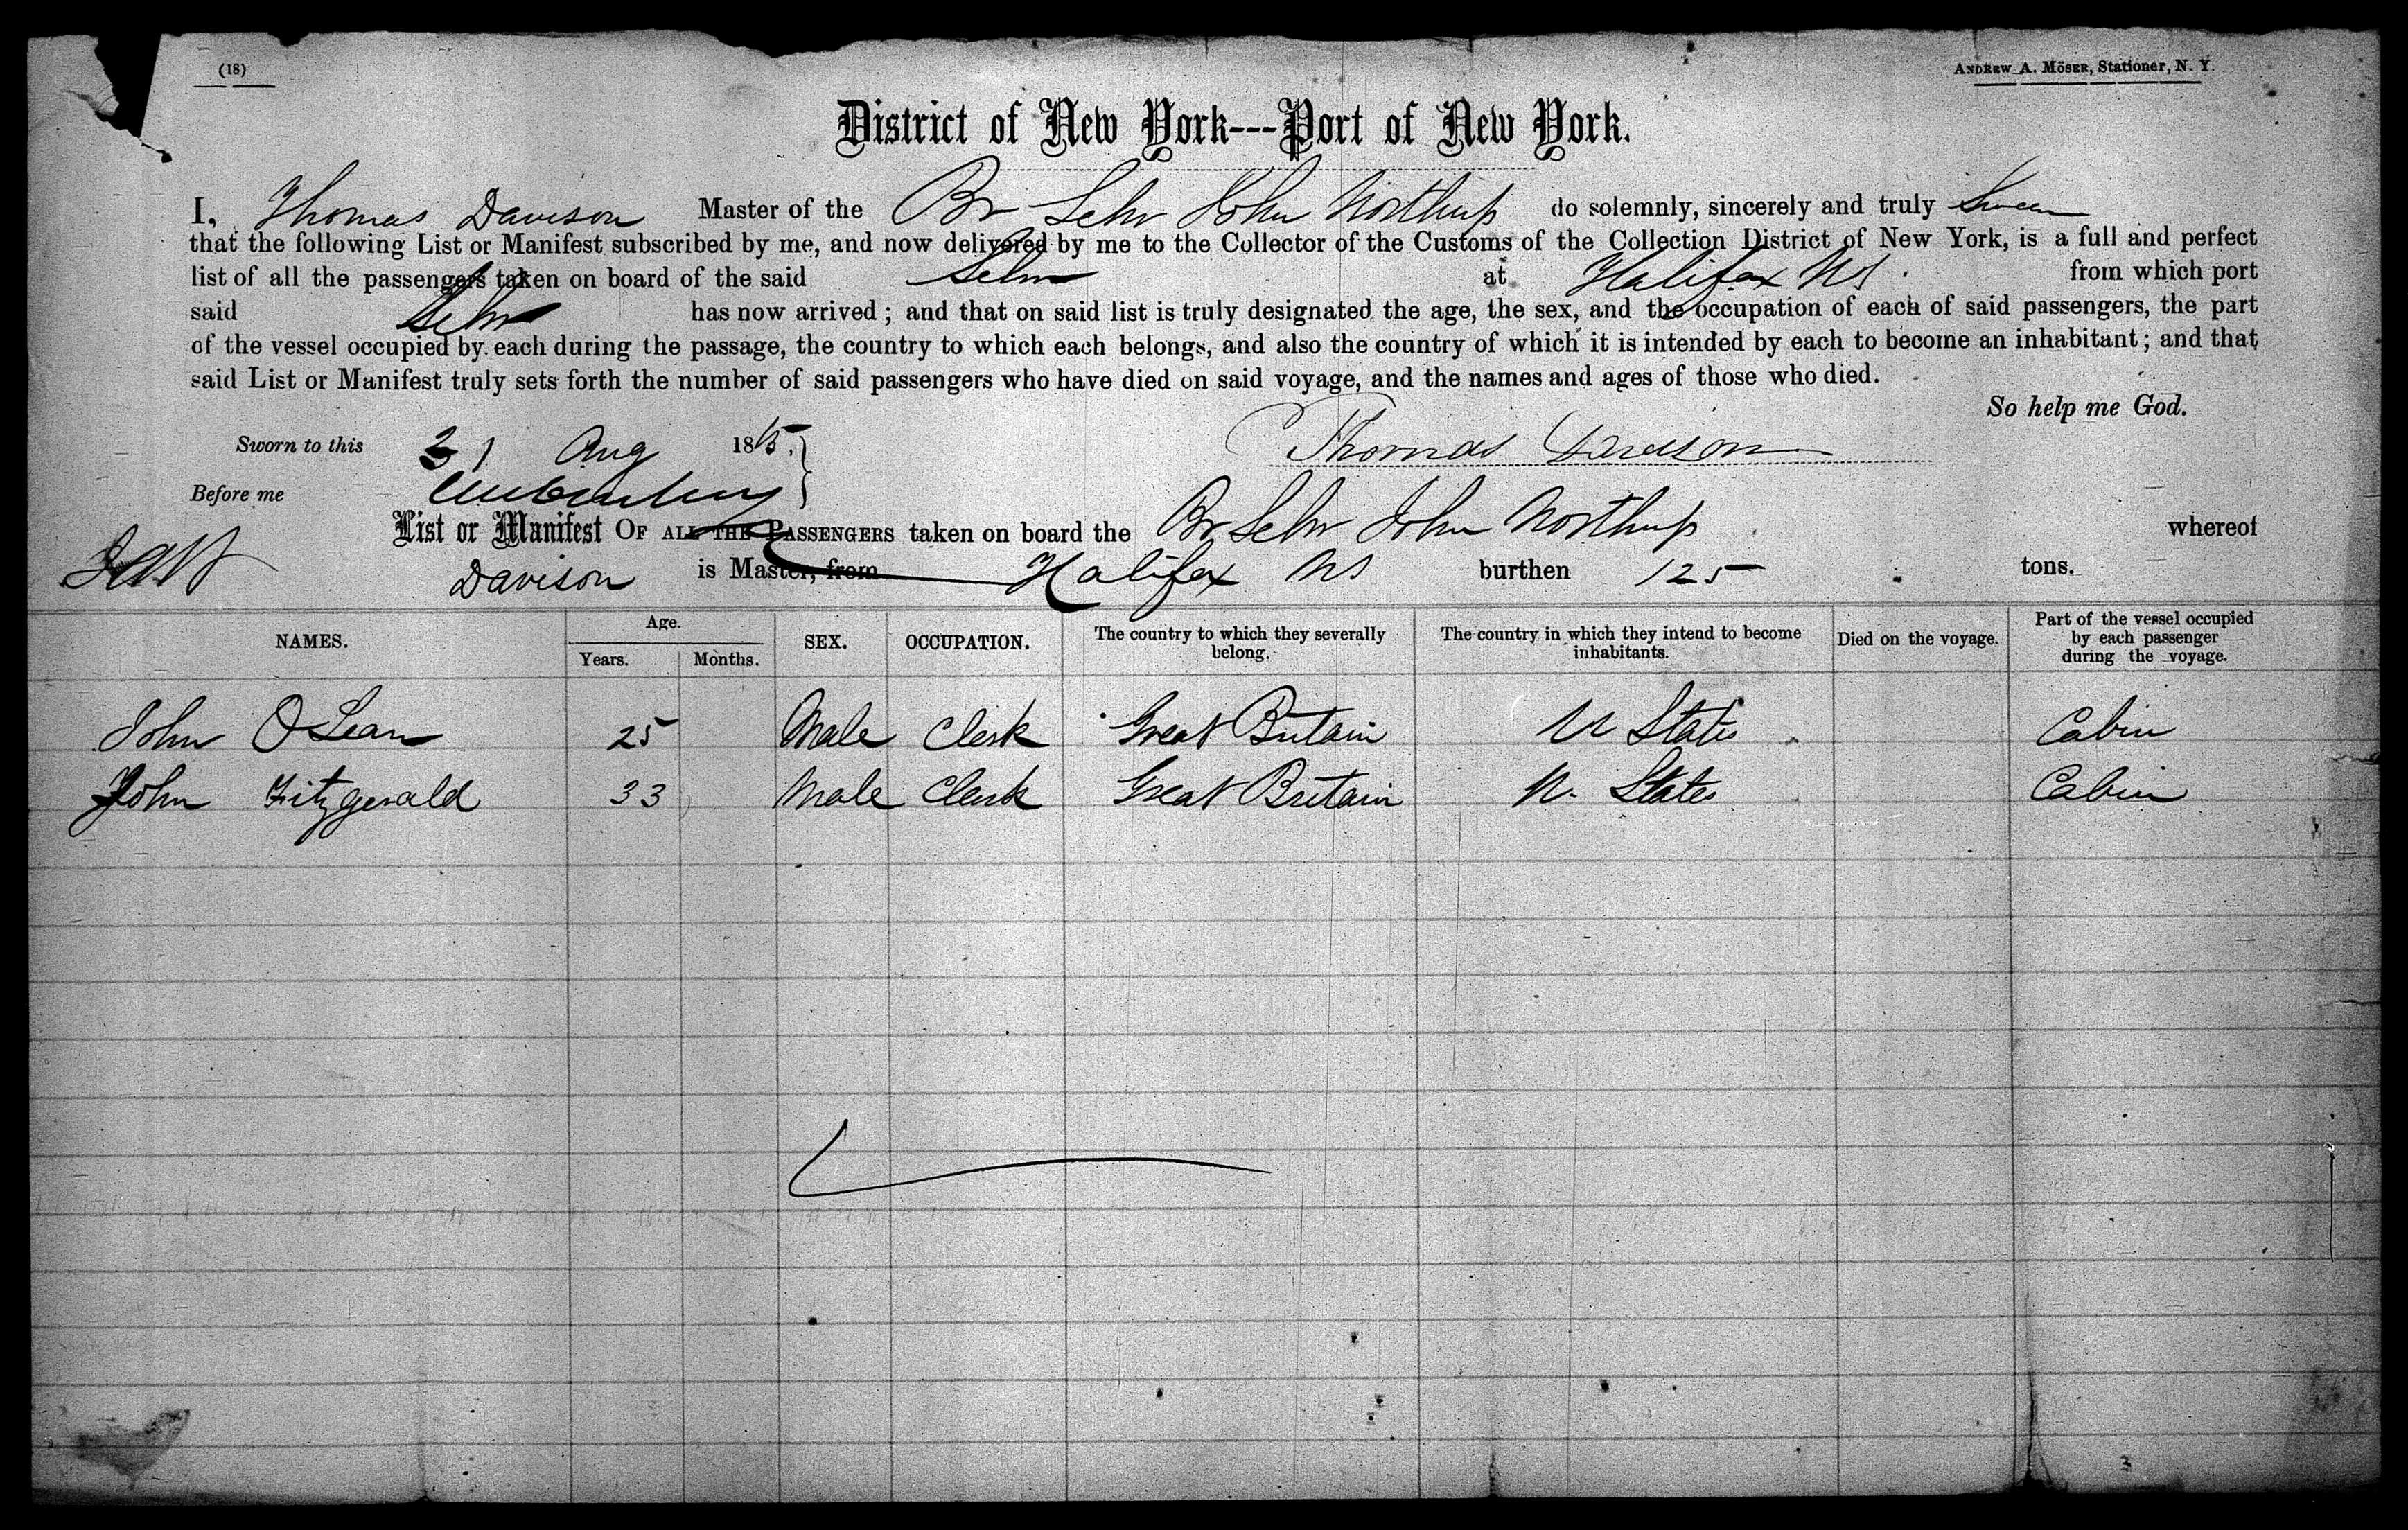 (18)
ANDREW A. MÖSER, Stationer, N. Y.
District of New York---Port of New York.
I, Thomas Davison Master of the Br Schr John Northup do solemnly, sincerely and truly Swear
that the following List or Manifest subscribed by me, and now delivered by me to the Collector of the Customs of the Collection District of New York, is a full and perfect
list of all the passengers taken on board of the said Schr at Halifax NS from which port
said Schr has now arrived; and that on said list is truly designated the age, the sex, and the occupation of each of said passengers, the part
of the vessel occupied by each during the passage, the country to which each belongs, and also the country of which it is intended by each to become an inhabitant; and that
said List or Manifest truly sets forth the number of said passengers who have died on said voyage, and the names and ages of those who died.
So help me God.
Sworn to this 21 Aug 1865. Thomas Davison
Before me
List or Manifest OF ALL THE PASSENGERS taken on board the Br Schr John Northup whereof
Davison is Master, from Halifax NS burthen 125 tons.
NAMES. Age. Years. Months. SEX. OCCUPATION. The country to which they severally belong. The country in which they intend to become inhabitants. Died on the voyage. Part of the vessel occupied by each passenger during the voyage.
John O Lean 25 Male Clerk Great Britain U States Cabin
John Fitzgerald 33 Male Clerk Great Britain U. States Cabin
3